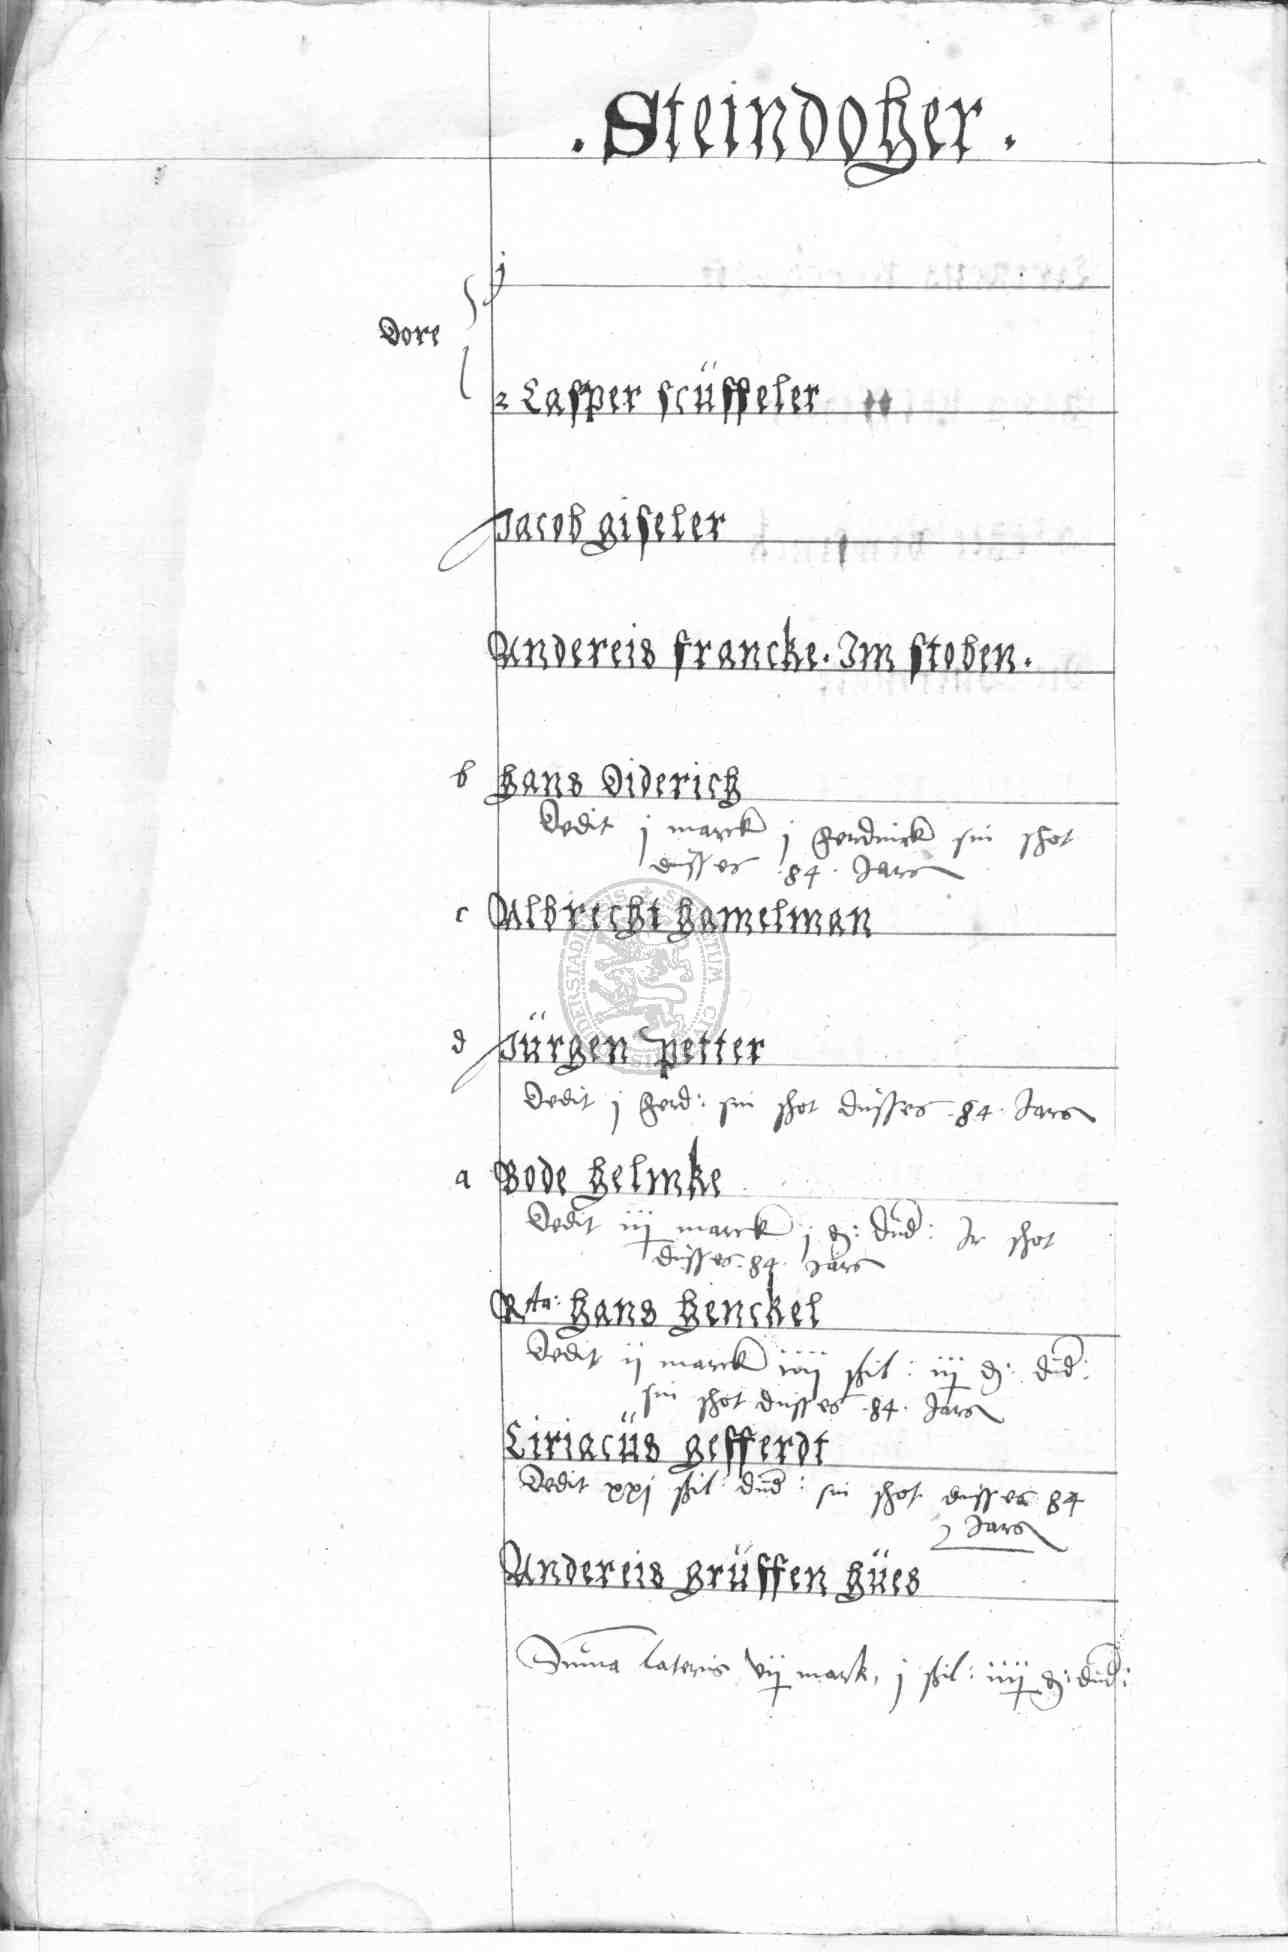 . Steindoher .
j
Dore
2 Casper scüffeler
Jacob giseler
Andereis francke. Im stoben.
b hans Diderich
Dedit j marck j ferdinck sin schot
dusses .84. Jars
c Albrecht hamelman
d Jürgen petter
Dedit j ferd: sin schot dusses .84. Jars
a Bode helmke
Dedit iij marck j d: dud: Ir schot
dusses .84. Jars
Rta: hans henckel
Dedit ij marck iiij schil: iij d: dud:
sin schot dusses .84. Jars
Ciriacüs gefferdt
Dedit xxj schil: dud: sin schot dusses 84
Jars
Andereis grüffen hües
Suma lateris vij mark, j schil: iiij d: dud: